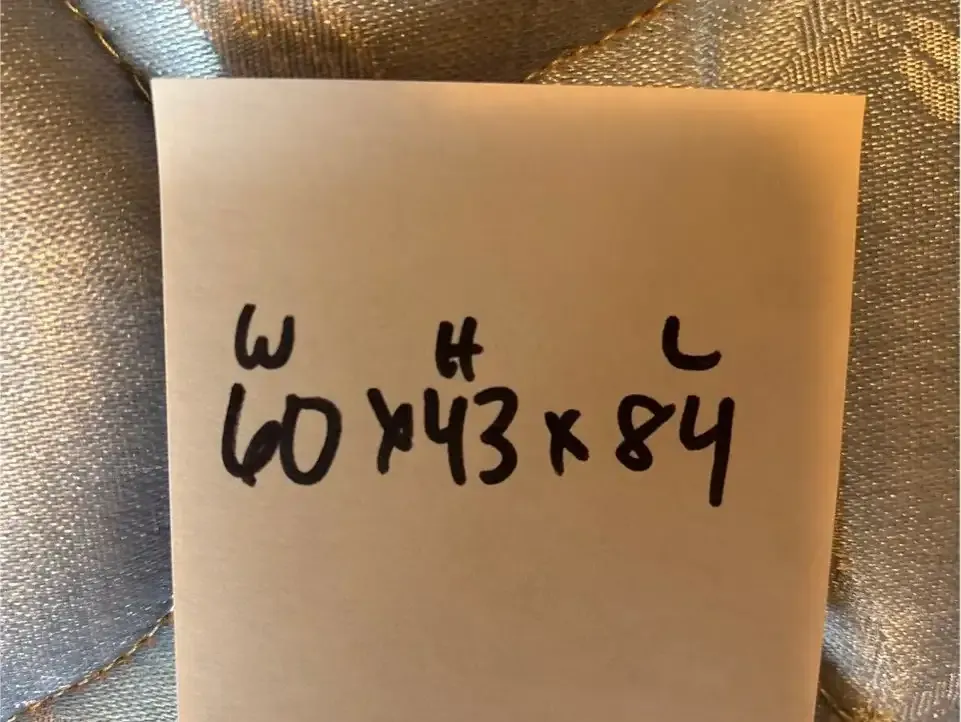 W H L
60 x 43 x 84